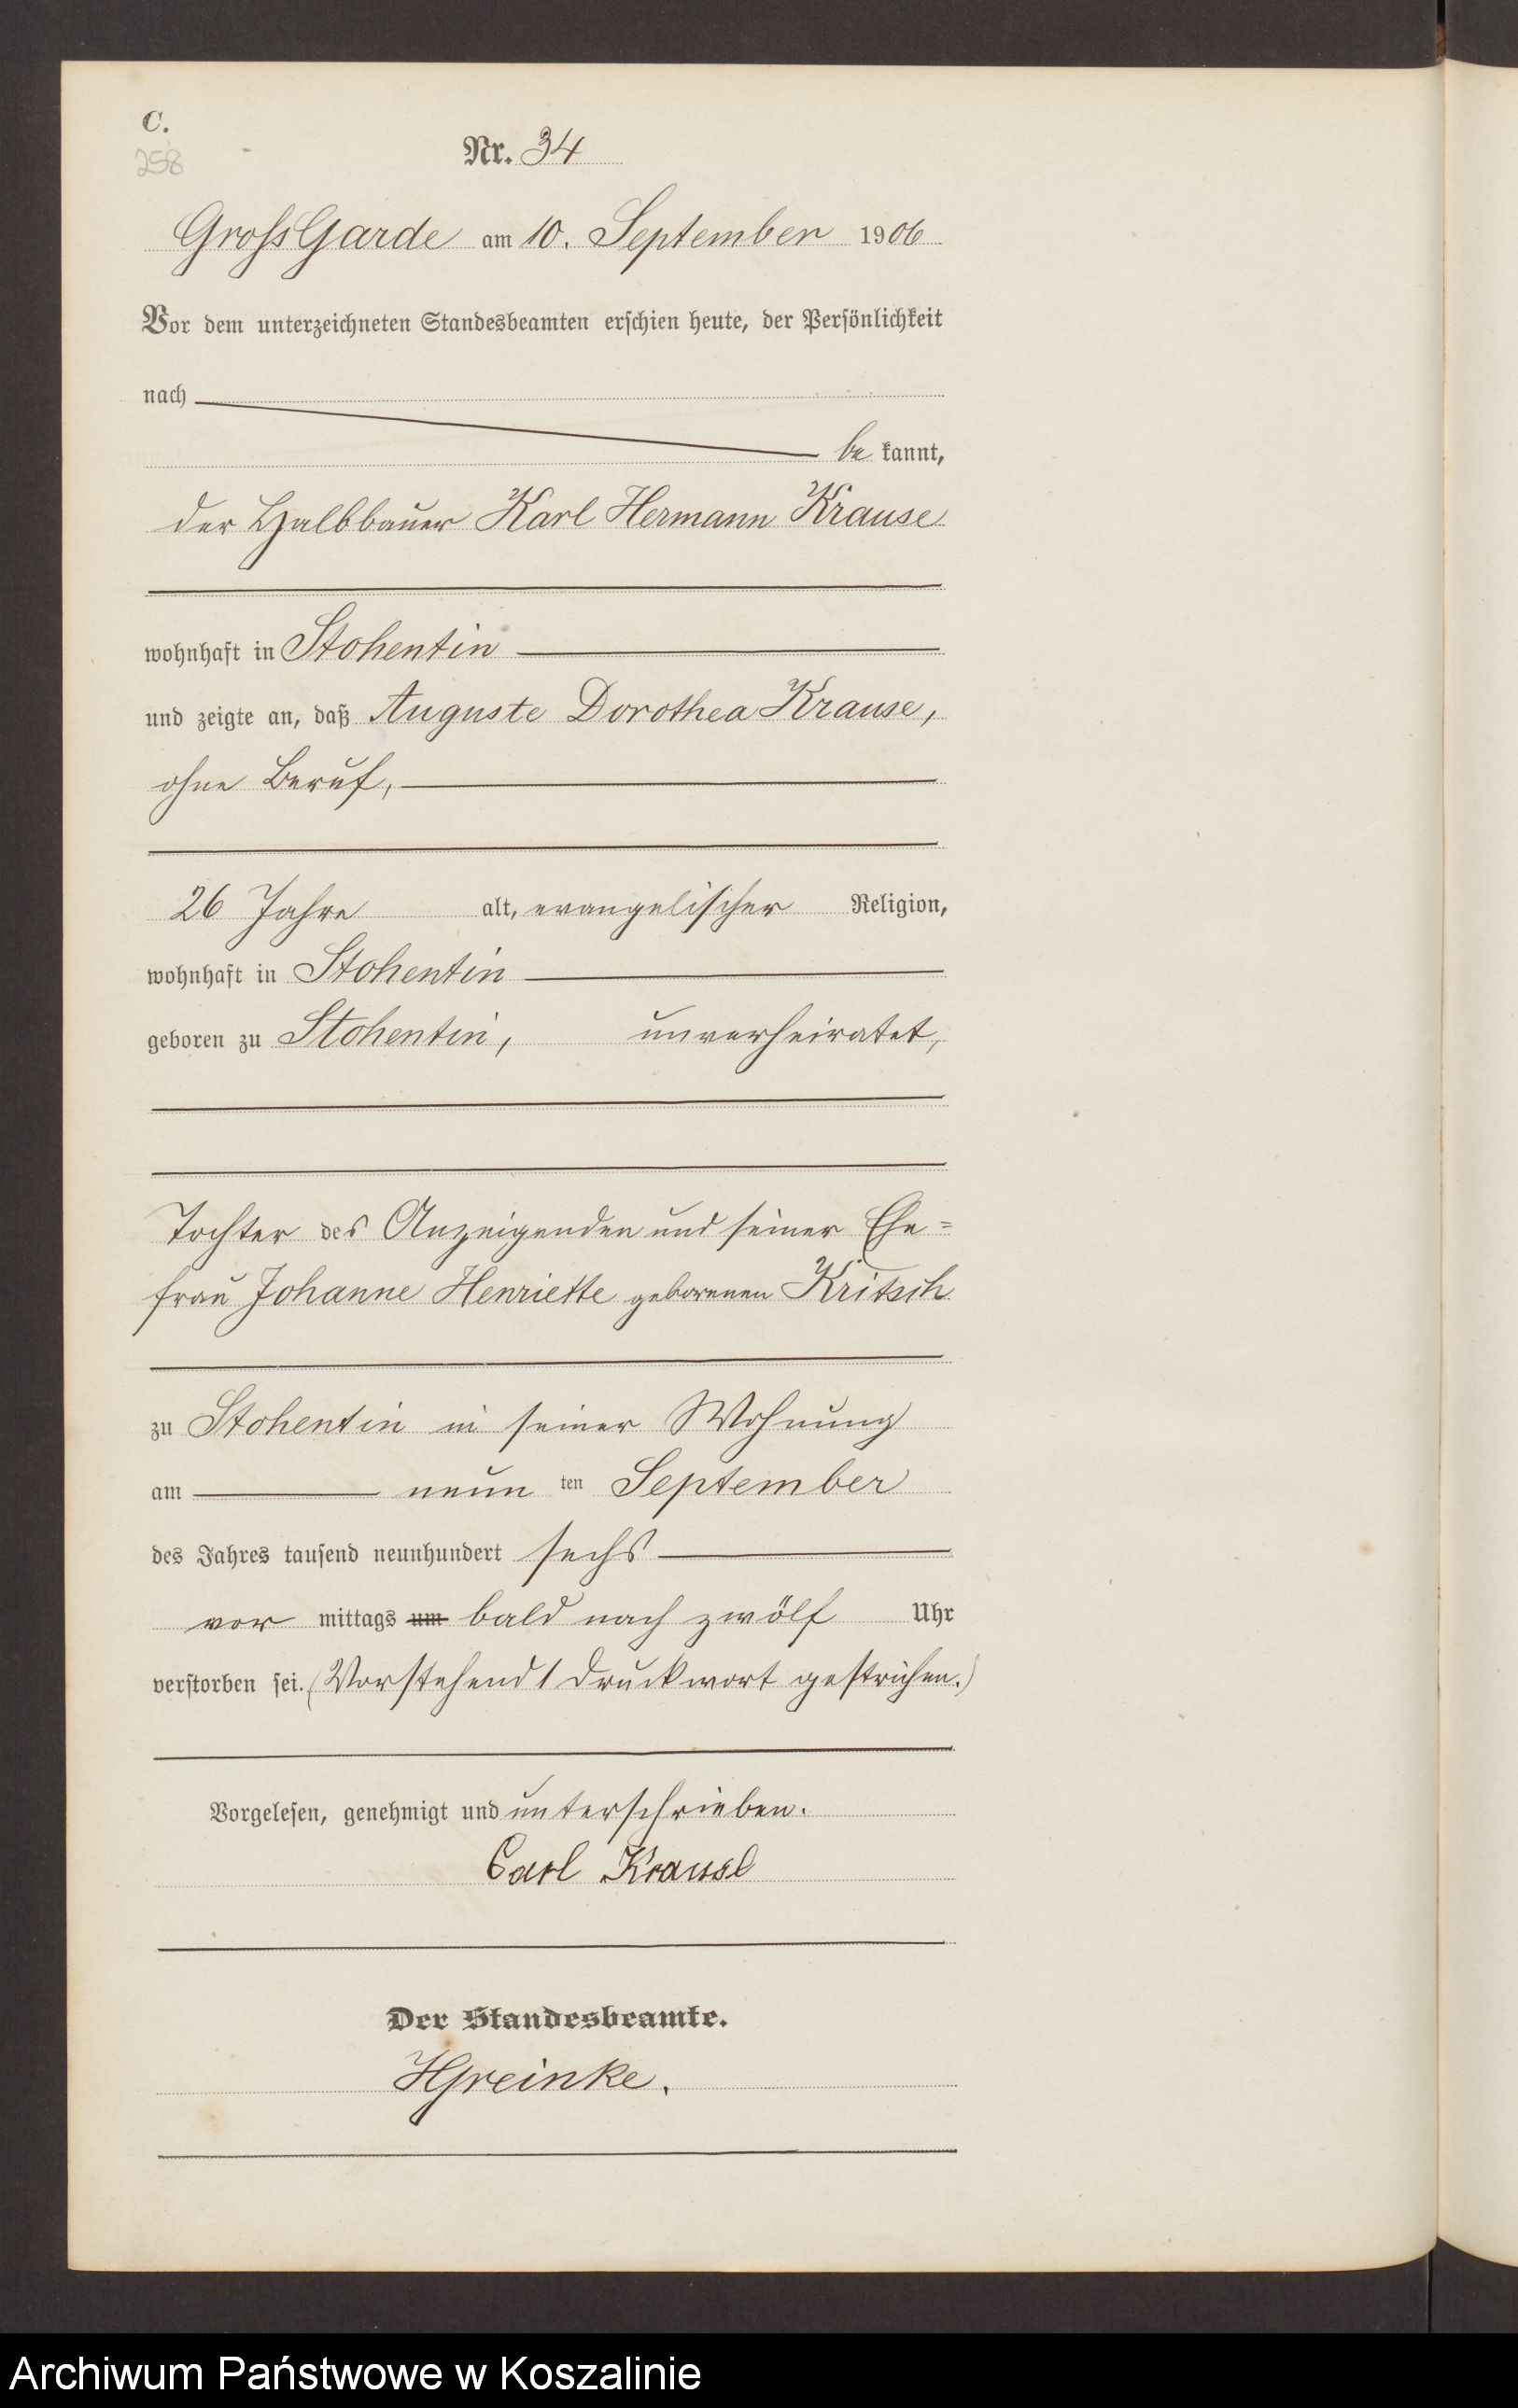 C.
258
Nr. 34
Gross Garde am 10. September 1906
Vor dem unterzeichneten Standesbeamten erschien heute, der Persönlichkeit
nach
be kannt,
der Halbbauer Karl Hermann Krause
wohnhaft in Stohentin
und zeigte an, daß Auguste Dorothea Krause,
ohne Beruf,
26 Jahre alt, evangelischer Religion,
wohnhaft in Stohentin
geboren zu Stohentin, unverheiratet,
Tochter des Anzeigenden und seiner Ehe=
frau Johanne Henriette geborenen Kritsch
zu Stohentin in seiner Wohnung
am neun ten September
des Jahres tausend neunhundert sechs
vor mittags um bald nach zwölf Uhr
verstorben sei. (Vorstehend 1 Druckwort gestrichen.)
Vorgelesen, genehmigt und unterschrieben.
Carl Krause
Der Standesbeamte.
HGreinke.
Archiwum Państwowe w Koszalinie